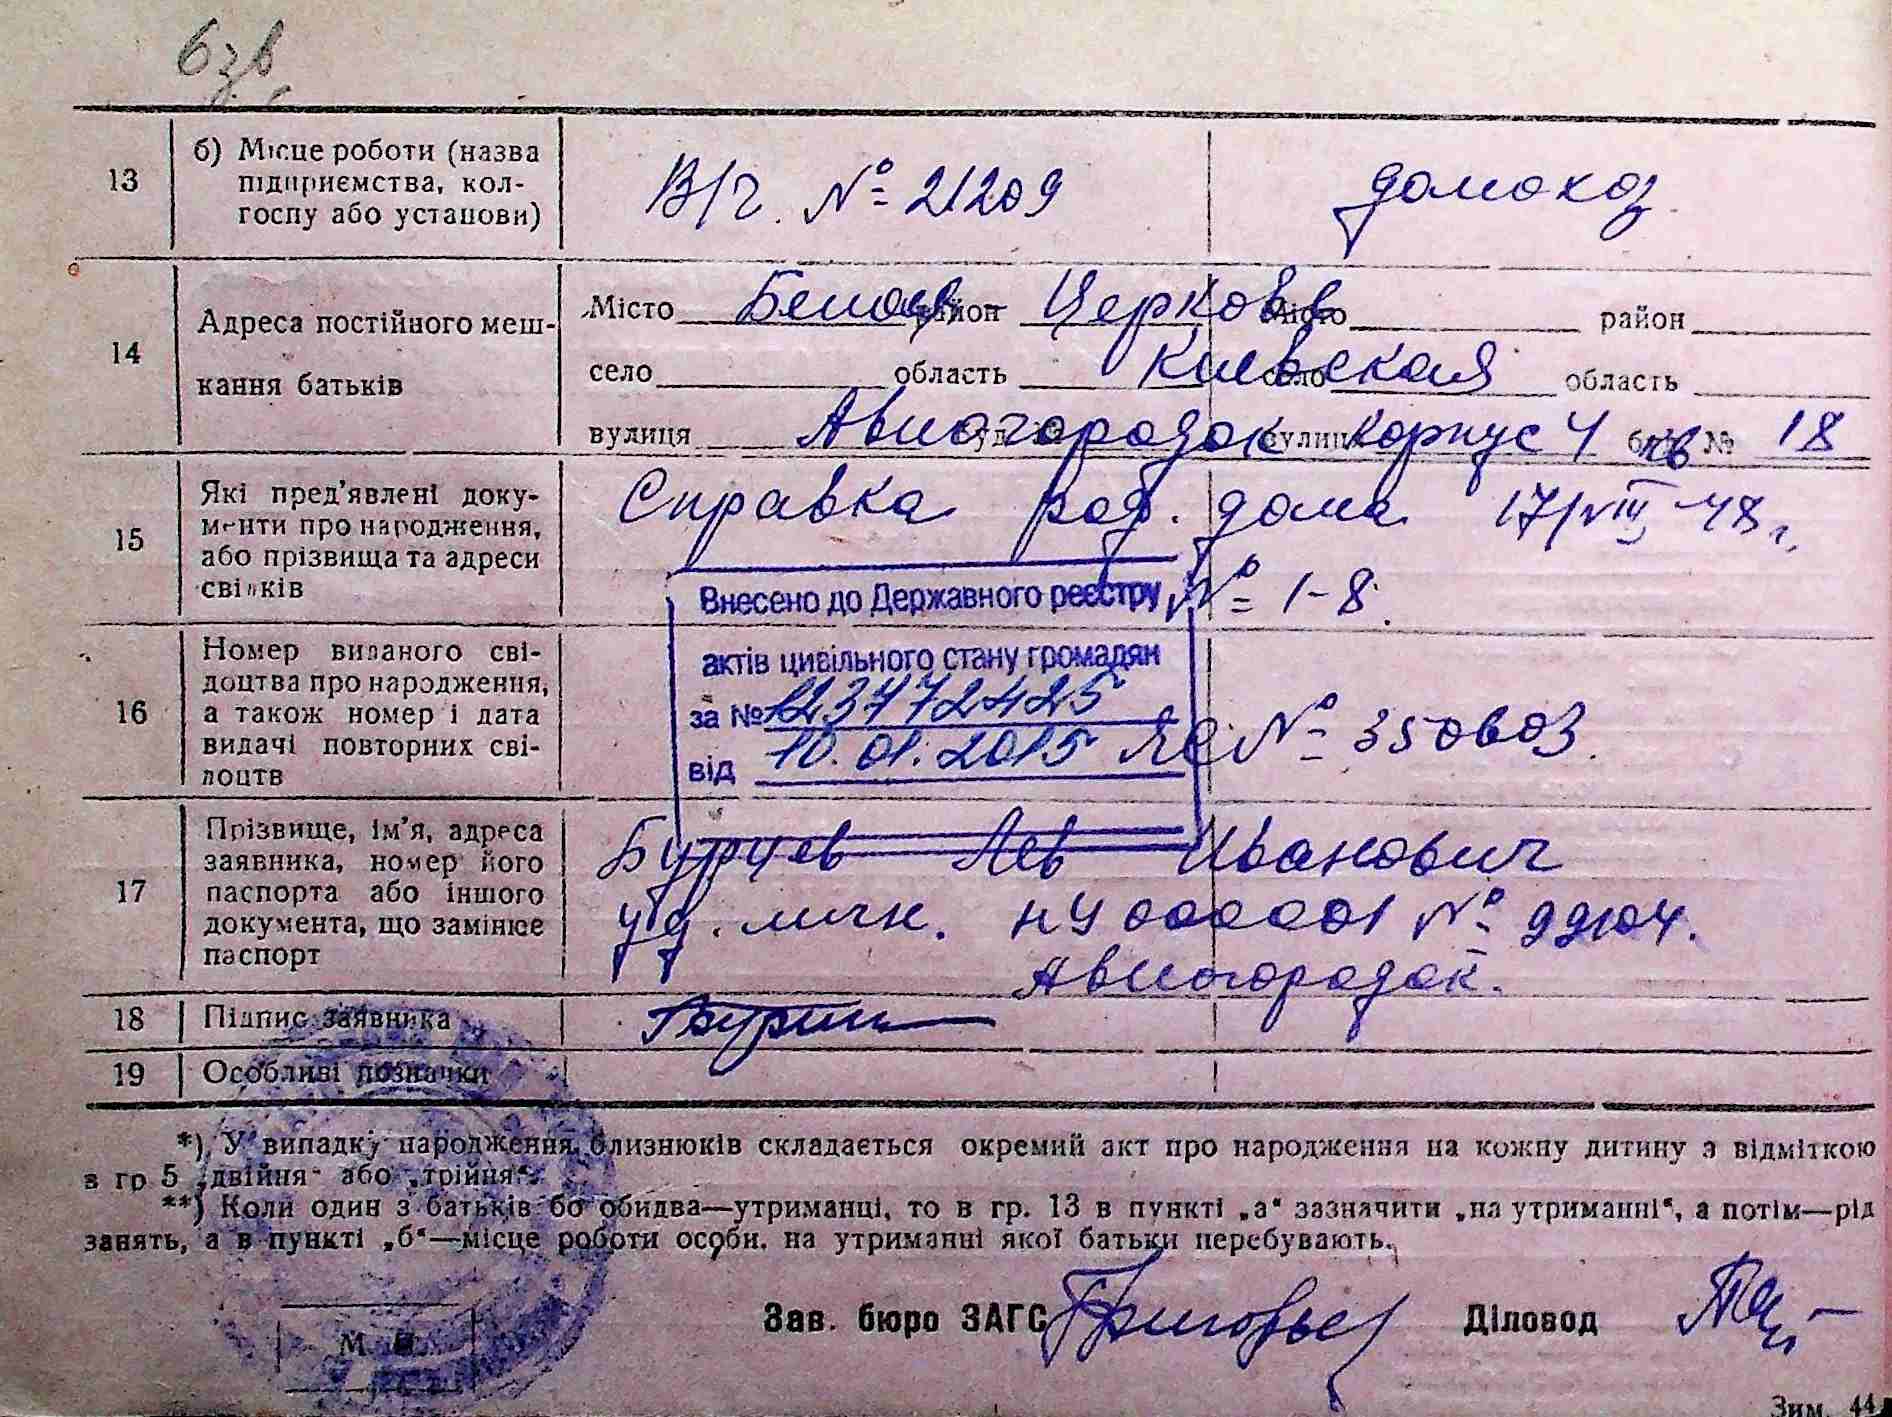 13
б) Місце роботи (назва
підприємства, кол-
госпу або установи)
В/ч. № 21209
домохоз.
14
Адреса постійного меш-
кання батьків
Місто Белая район Церковь Місто район
село область Киевская село область
вулиця Авиогородок вулиця корпус 4 кв № 18
15
Які пред'явлені доку-
менти про народження,
або прізвища та адреси
свідків
Справка род. дома 17/VIII-48 г.
№ 1-8.
Внесено до Державного реєстру
актів цивільного стану громадян
за № 123772425
від 10.01.2015
16
Номер виданого сві-
доцтва про народження,
а також номер і дата
видачі повторних сві-
доцтв
№ 350603
17
Прізвище, ім'я, адреса
заявника, номер його
паспорта або іншого
документа, що замінює
паспорт
Бурцев Лев Иванович
уд. личн. НЧ 000001 № 99104.
Авиогородок.
18
Підпис заявника
19
Особливі позначки
*) У випадку народження близнюків складається окремий акт про народження на кожну дитину з відміткою
в гр 5 „двійня" або „трійня".
**) Коли один з батьків бо обидва—утриманці, то в гр. 13 в пункті „а" зазначити „на утриманні", а потім—рід
занять, а в пункті „б"—місце роботи особи, на утриманні якої батьки перебувають.
Зав. бюро ЗАГС
Діловод
М. П.
Зим. 44